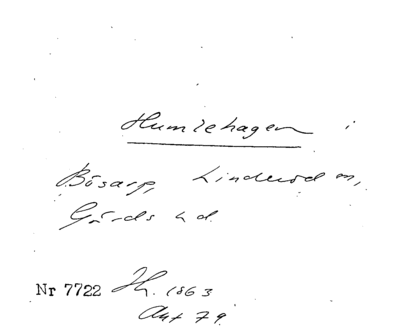 Humlehagen i
Bösarp, Linderöd sn,
Gärds hd.
Nr 7722 Hh. 1863
Akt 79.